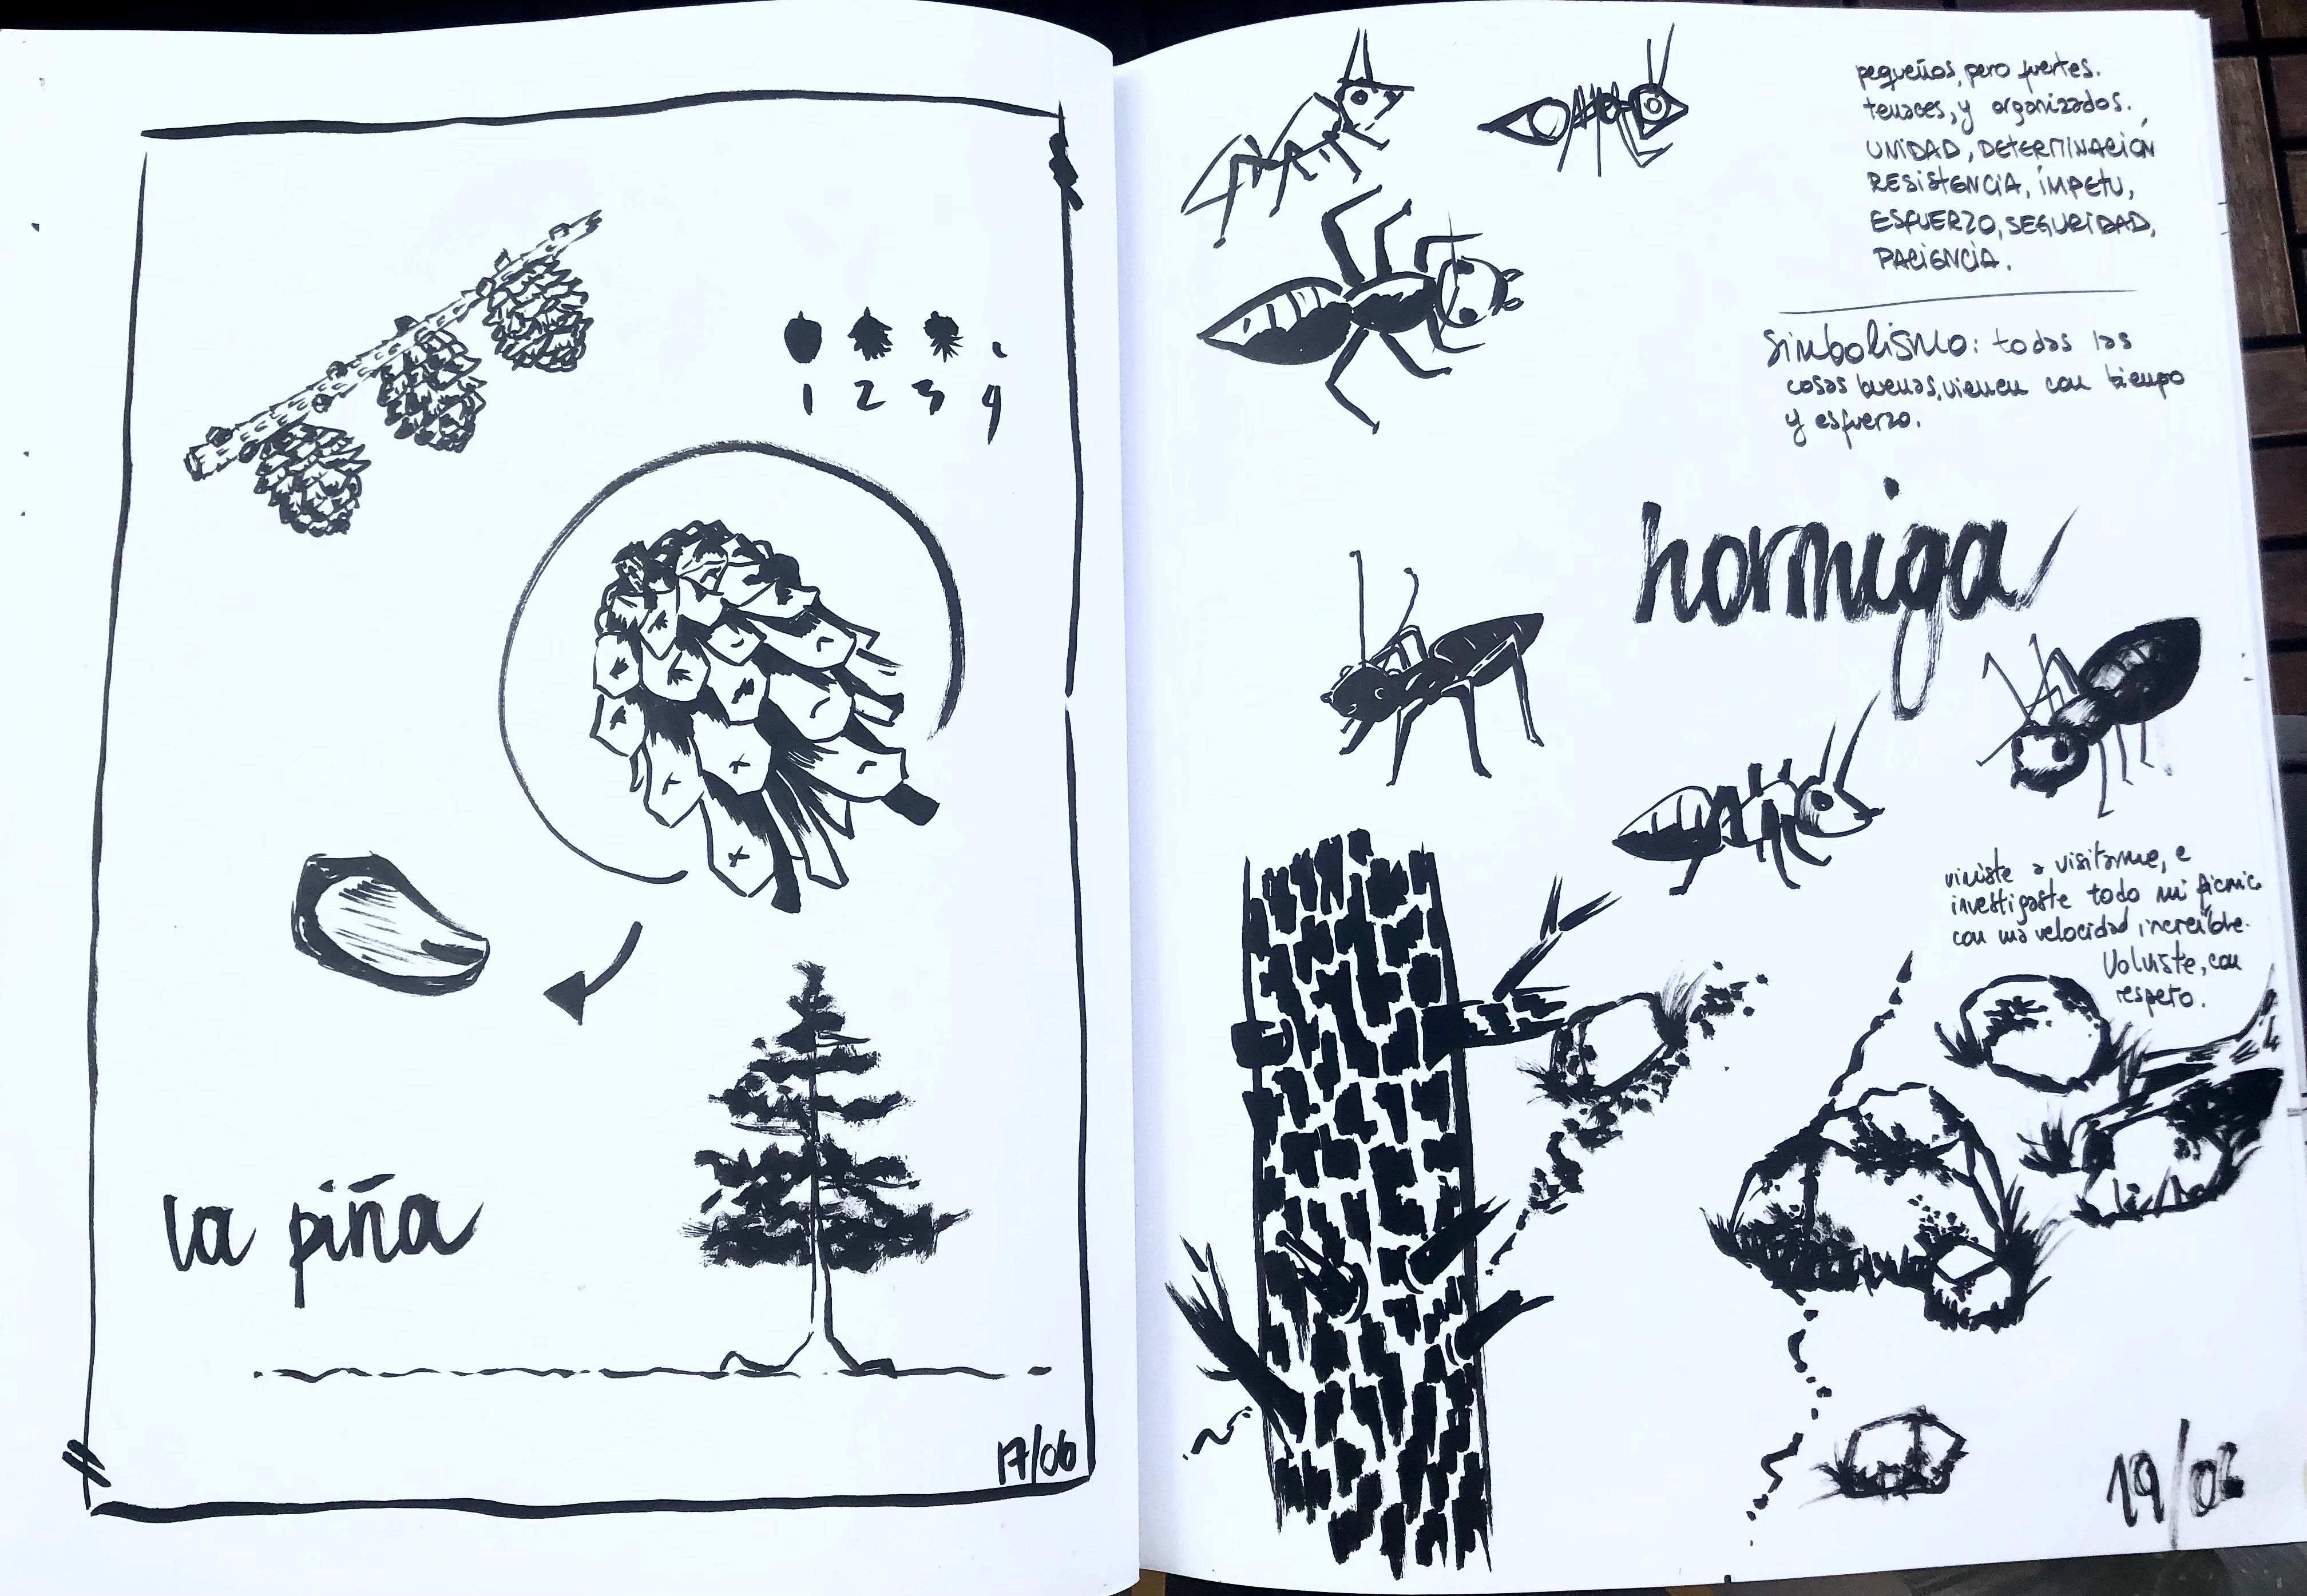 1 2 3 4
la piña
17/06
pequeños, pero fuertes.
tenaces, y organizados.
UNIDAD, DETERMINACIÓN
RESISTENCIA, ÍMPETU,
ESFUERZO, SEGURIDAD,
PACIENCIA.
Simbolismo: todas las
cosas buenas, vienen con tiempo
y esfuerzo.
hormiga
viniste a visitarme, e
investigaste todo mi picnic
con una velocidad, increíble.
Volviste, con
respeto.
19/06